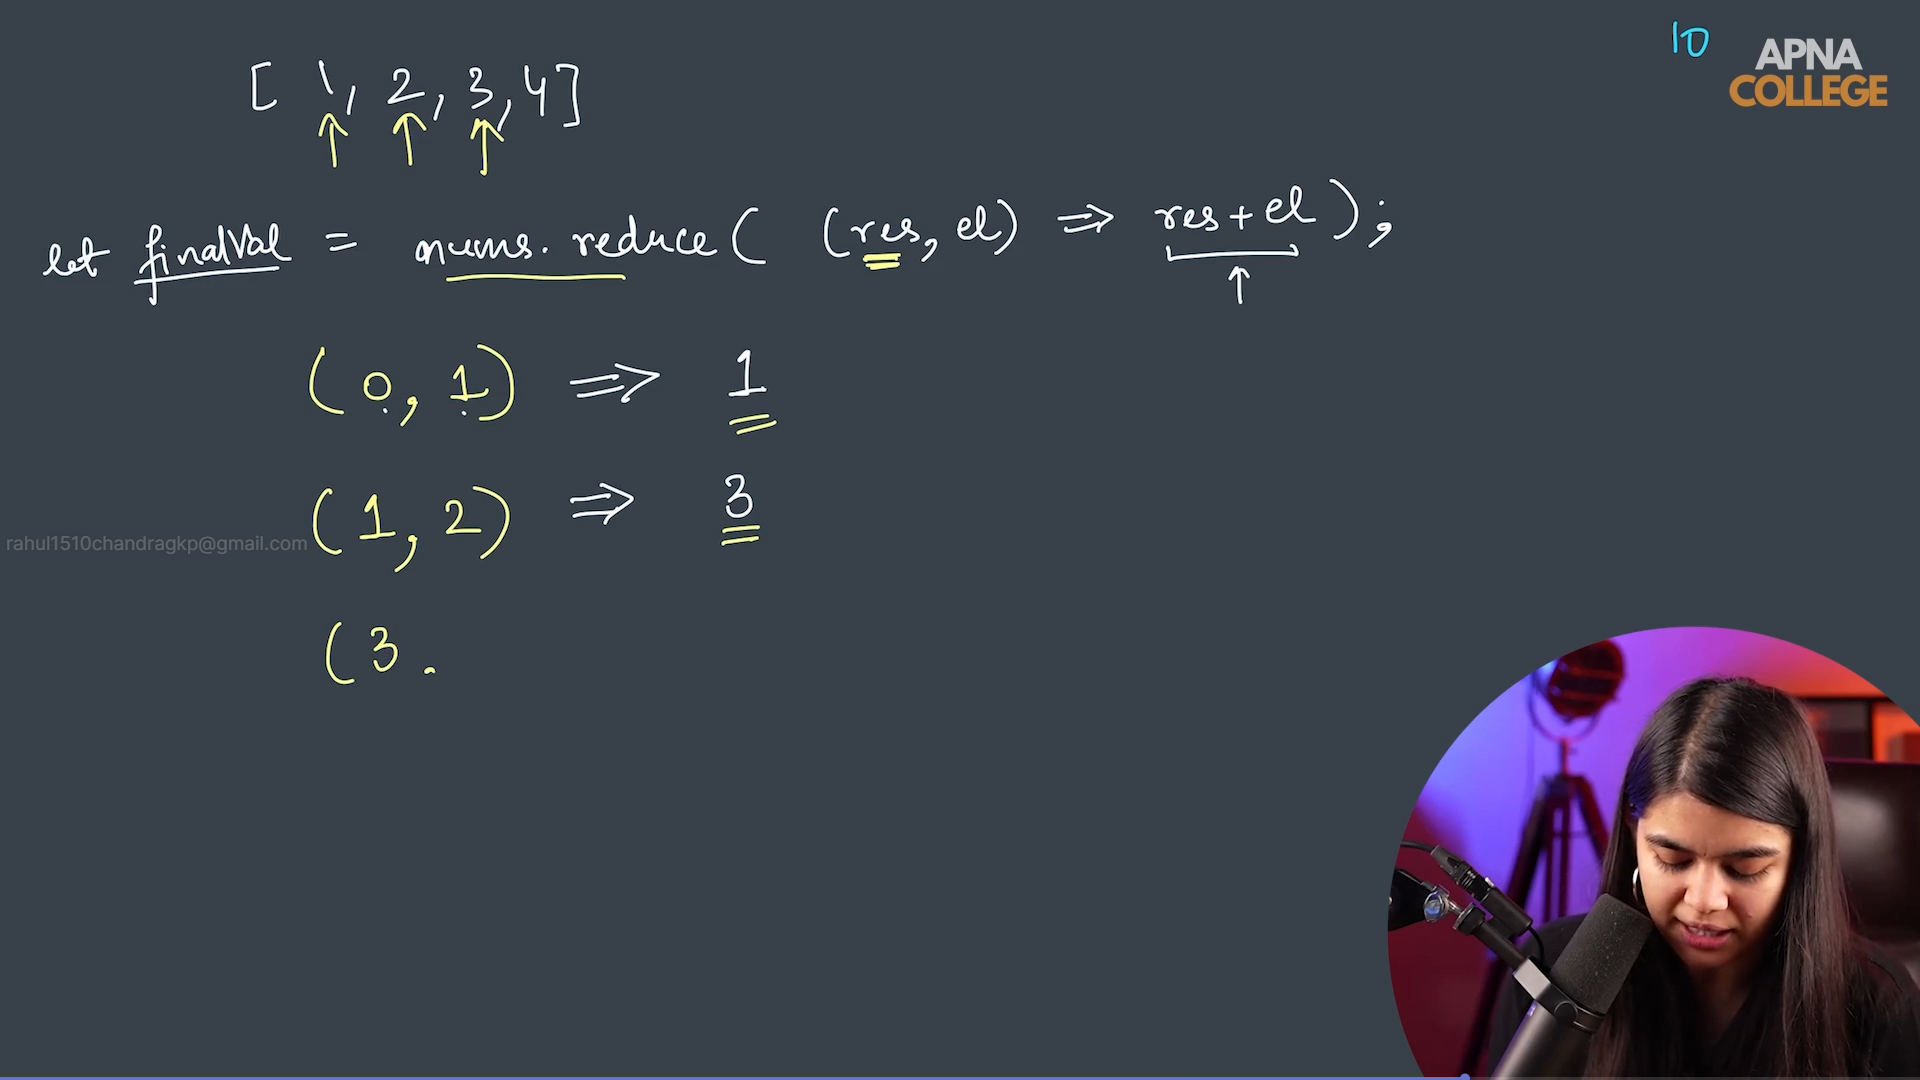 10
APNA
COLLEGE
[ 1, 2, 3, 4]
let finalVal = nums. reduce( (res, el) => res + el );
(0, 1) => 1
(1, 2) => 3
rahul1510chandragkp@gmail.com
(3 .